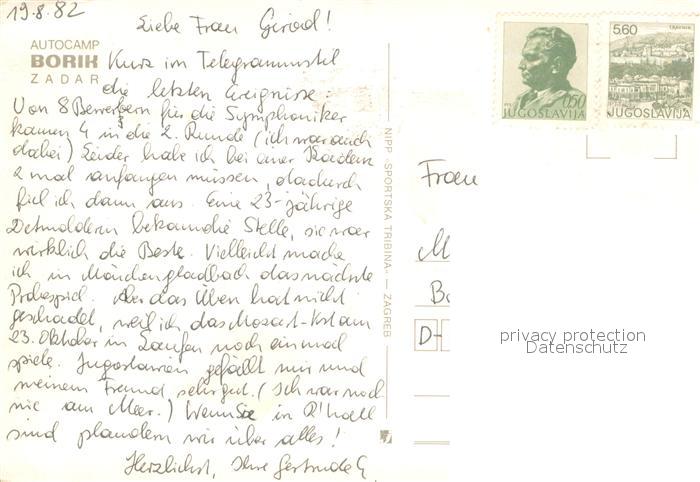 19.8.82
Liebe Frau Giriod!
AUTOCAMP
BORIK
ZADAR
Kurz im Telegrammstil
die letzten Ereignisse:
Von 8 Bewerbern für die Symphoniker
kamen 4 in die 2. Runde (ich war auch
dabei) Leider habe ich bei einer Kadenz
2 mal anfangen müssen, dadurch
fiel ich dann aus. Eine 23-jährige
Detmolderin bekam die Stelle, sie war
wirklich die Beste. Vielleicht mache
ich in Mönchengladbach das nächste
Probespiel. Aber das Üben hat nicht
geschadet, weil ich das Mozart-Konz am
23. Oktober in Laufen noch einmal
spiele. Jugoslawien gefällt mir und
meinem Freund sehr gut. (Ich war noch
nie am Meer.) Wenn Sie in R'hall
sind plaudern wir über alles!
Herzlichst, Ihre Gertrude G
NIPP »SPORTSKA TRIBINA« — ZAGREB
0,50
JUGOSLAVIJA
TRAVNIK
5,60
JUGOSLAVIJA
Frau
M
Ba
D-
privacy protection
Datenschutz